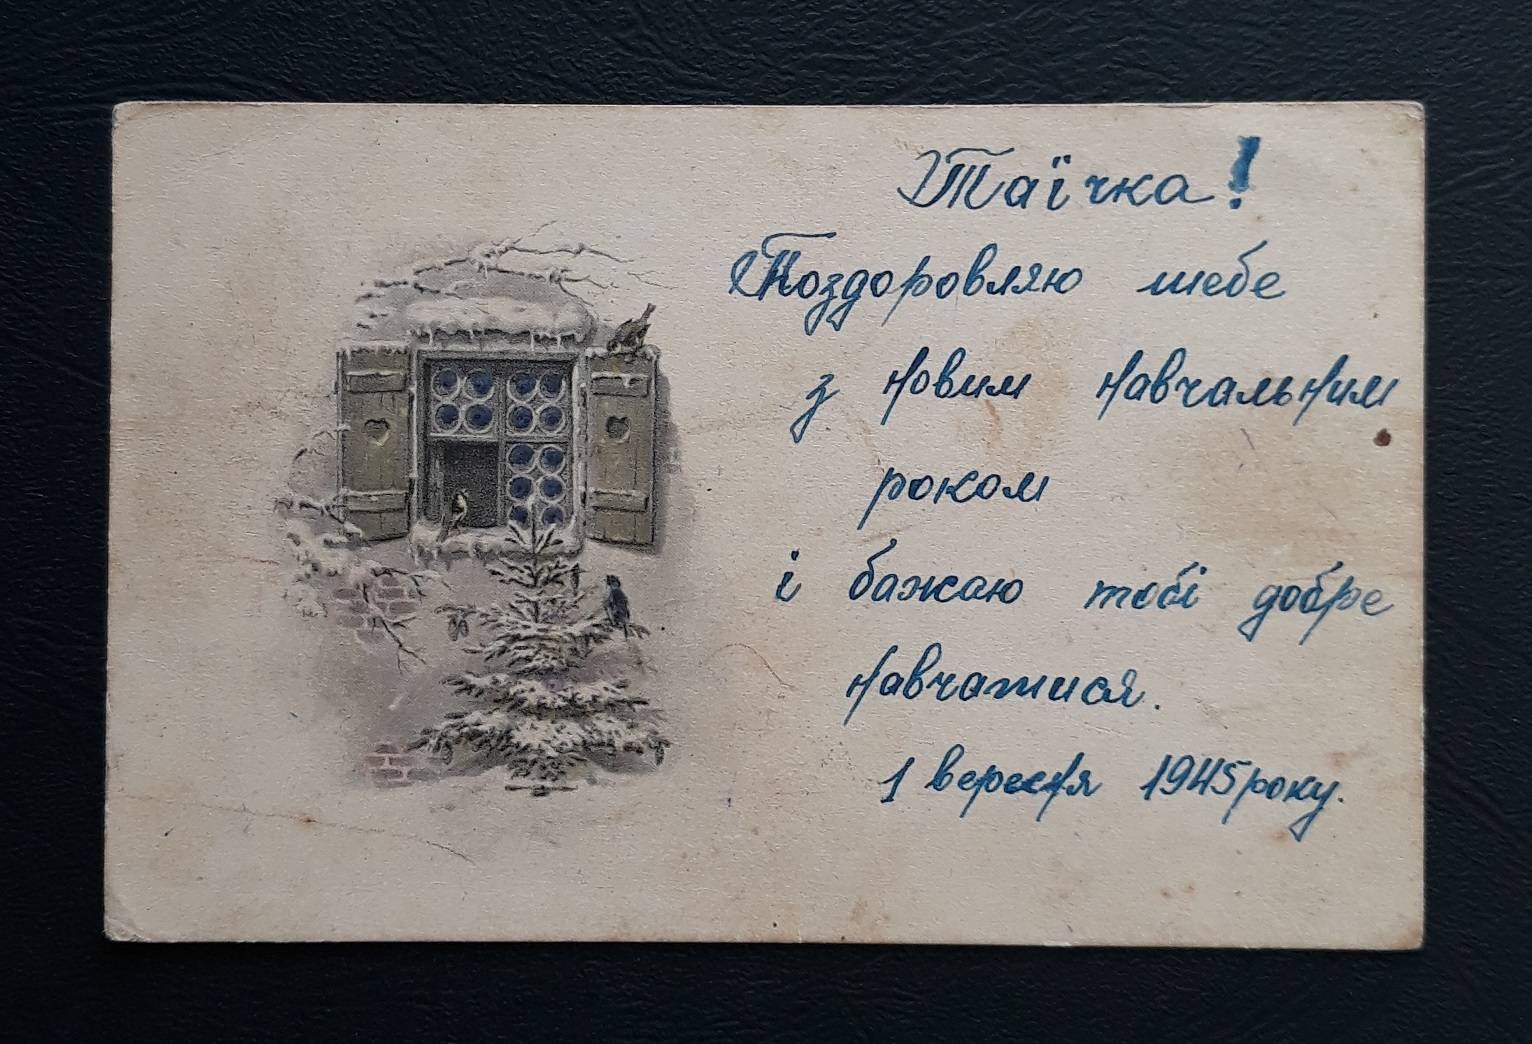 Таїчка!
Поздоровляю тебе
з новим навчальним
роком
і бажаю тобі добре
навчатися.
1 вересня 1945 року.